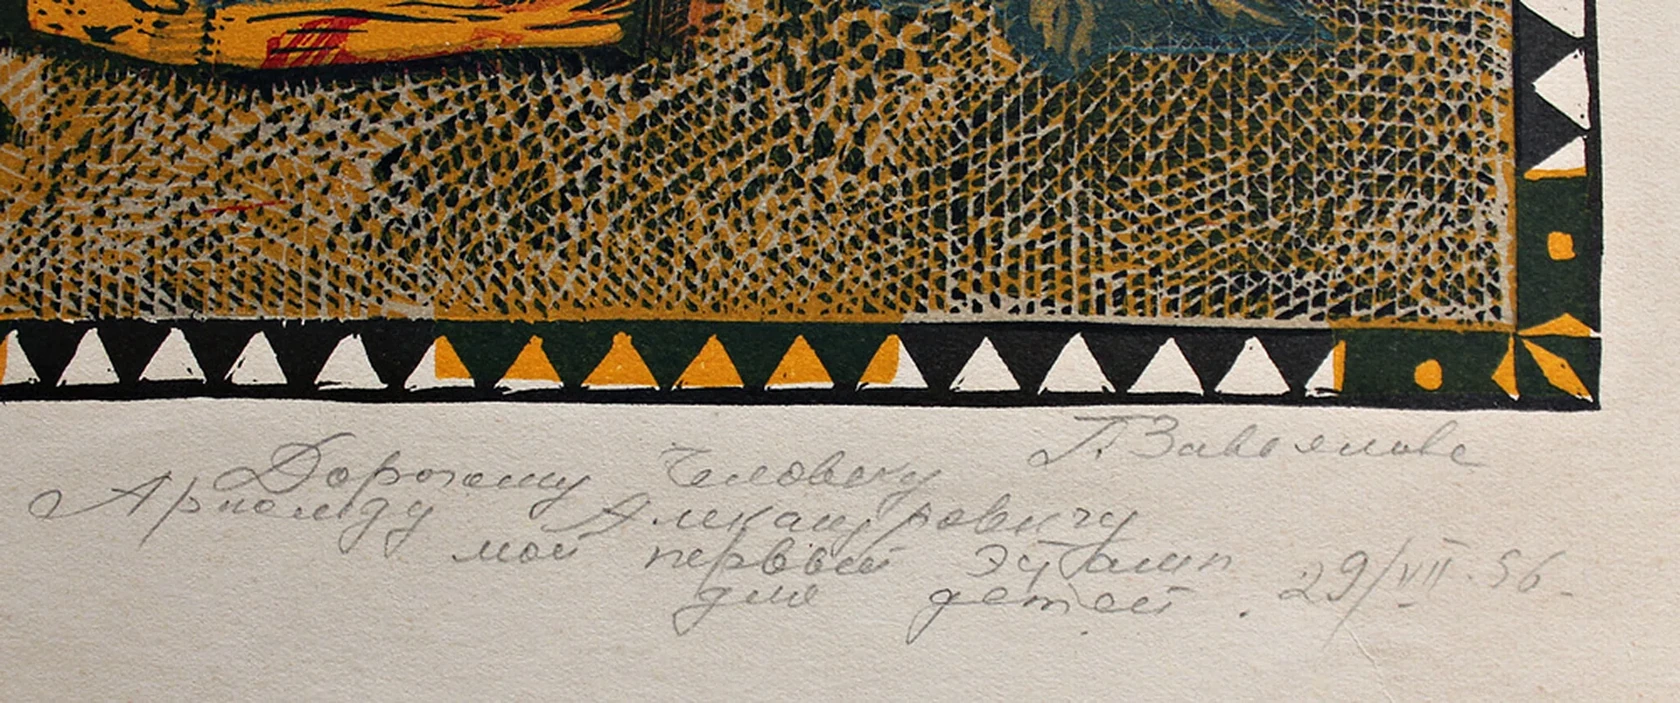 Г. Завьялова
Дорогому Человеку
Арнольду Александровичу
мой первый эстамп
для детей. 29/VII-56-